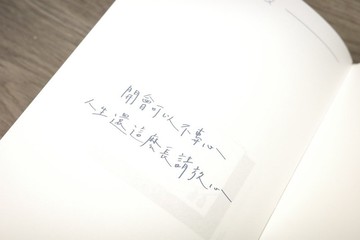 開會可以不專心
人生還這麼長請放心